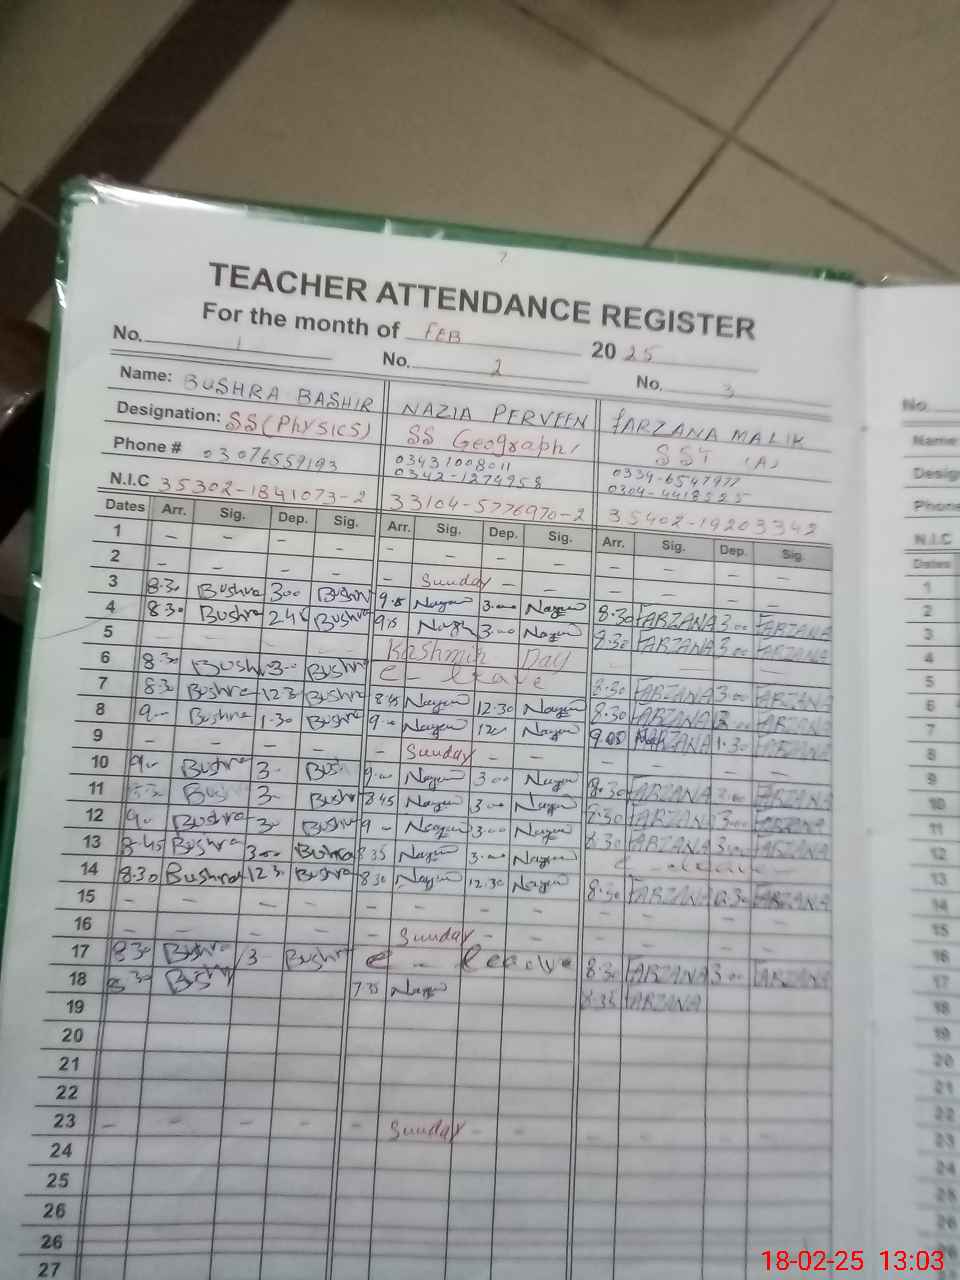 TEACHER ATTENDANCE REGISTER
For the month of FEB 2025
No. 1 No. 2 No. 3
Name: BUSHRA BASHIR NAZIA PERVEEN FARZANA MALIK
Designation: SS(Physics) SS Geography SST (A)
Phone # 03076559193 03431008011 0334-6547977
0342-1274958 0304-4418525
N.I.C 35302-1841073-2 33104-5776970-2 35402-19203342
Dates Arr. Sig. Dep. Sig. Arr. Sig. Dep. Sig. Arr. Sig. Dep. Sig.
1 - - - - - - - - - -
2 - - - - - Sunday - - - - - -
3 8.30 Bushra 3.00 Bushra Nazia 3.00 Nazia 8.30 FARZANA 3.00 FARZANA
4 8.30 Bushra 2.45 Bushra 3.00 Nazia 8.30 FARZANA 3.00 FARZANA
5 - - - - Kashmir Day - - - -
6 8.30 Bushra 3.00 Bushra e - leave 8.30 FARZANA 3.00 FARZANA
7 8.30 Bushra 12.30 Bushra 8.45 Nazia 12.30 Nazia 8.30 FARZANA FARZANA
8 9.- Bushra 1.30 Bushra 9.00 Nazia Nazia 9.00 FARZANA 1.30 FARZANA
9 - - - - - Sunday - - - - - -
10 9.- Bushra 3- Bushra 9.00 Nazia 3.00 Nazia 8.30 FARZANA 3.00 FARZANA
11 Bushra 3- Bushra 8.45 Nazia 3.00 Nazia 8.30 FARZANA 3.00 FARZANA
12 9.- Bushra Bushra 9 - Nazia 3.00 Nazia 8.30 FARZANA 3.00 FARZANA
13 8.45 Bushra 3.00 Bushra 8.35 Nazia 3.00 Nazia e - leave -
14 8.30 Bushra 12.30 Bushra 8.30 Nazia 12.30 Nazia 8.30 FARZANA 12.30 FARZANA
15 - - - - - - - - - -
16 - - - - - Sunday - - - - - -
17 8.30 Bushra 3- Bushra e - leave 8.30 FARZANA 3.00 FARZANA
18 8.30 Bushra 7.35 Nazia 8.35 FARZANA
19
20
21
22
23 - - - - - Sunday - - - - - -
24
25
26
26
27
No.
Name
Desig
Phone
N.I.C
Dates
1
2
3
4
5
6
7
8
9
10
11
12
13
14
15
16
17
18
19
20
21
22
23
24
25
26
18-02-25 13:03